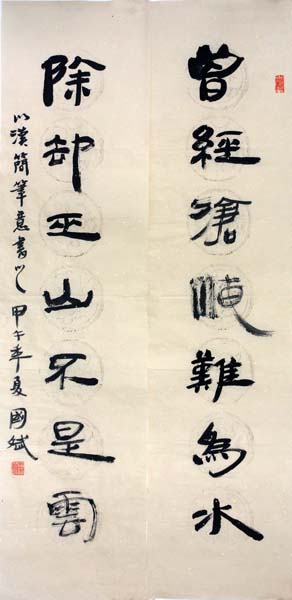 曾經滄海難為水
除却巫山不是雲
以漢簡筆意書之 甲午年夏 國斌